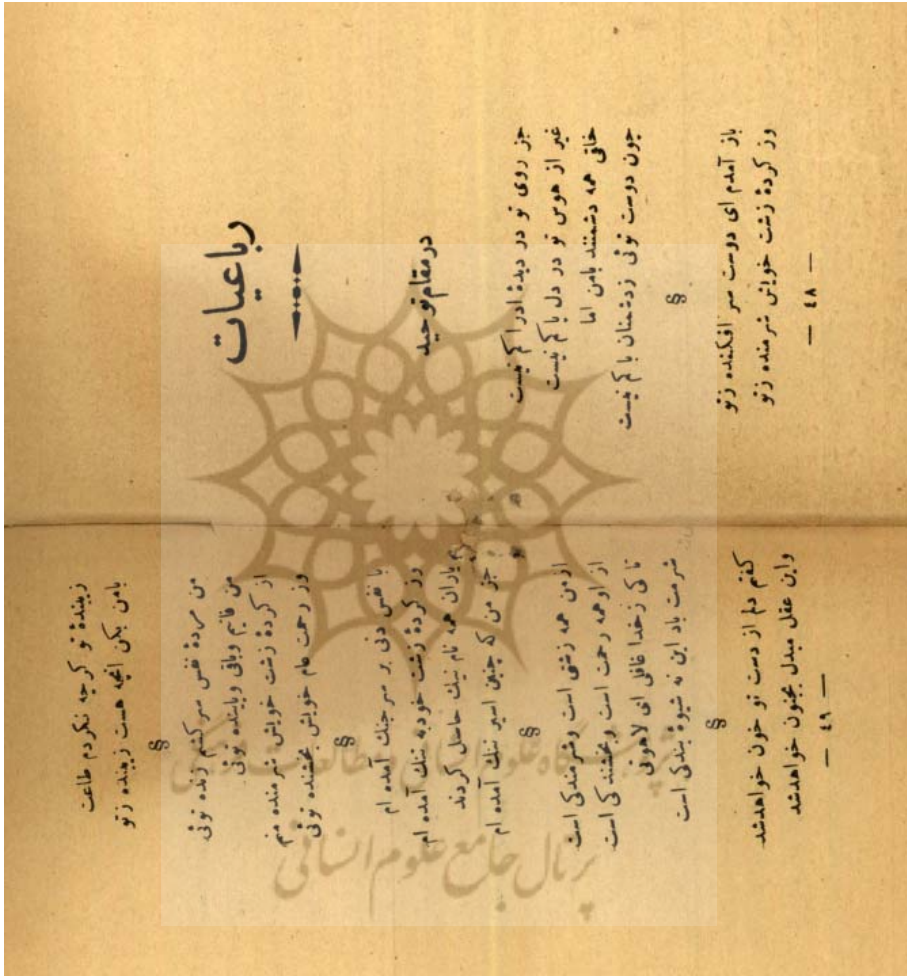 رباعیات
درمقام توحید
جز روی تو در دیدهٔ ادراکم نیست
غیر از هوس تو در دل پاکم نیست
خلقی همه دشمنند بامن اما
چون دوست توئی زدشمنان باکم نیست
§
باز آمدم ای دوست سر افکنده زتو
وز کردهٔ زشت خویش شرمنده زتو
— ٤٨ —
زیبندهٔ تو گرچه نکردم طاعت
بامن بکن آنچه هست زیبنده زتو
§
من مردهٔ نفس سرکشم زنده توئی
من فانیم وباقی وپاینده توئی
از کردهٔ زشت خویش شرمنده منم
وز رحمت عام خویش بخشنده توئی
§
با نفس دنی بر سر جنک آمده ام
وز کردهٔ زشت خودبه تنک آمده ام
یاران همه نام نیک حاصل کردند
جز من که چنین اسیر ننک آمده ام
§
ازمن همه زشتی است وشرمندکی است
از اوهمه رحمت است وبخشندکی است
تاکی زخدا غافلی ای لاهوتی
شرمت باد این نه شیوهٔ بندکی است
§
کفتم دلم از دست تو خون خواهدشد
واین عقل مبدل بجنون خواهدشد
— ٤٩ —
پژوهشگاه علوم انسانی و مطالعات فرهنگی
پرتال جامع علوم انسانی